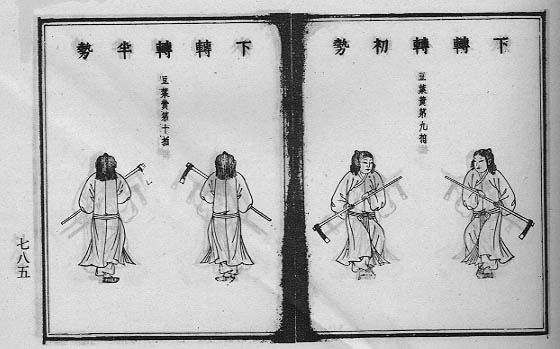 下轉轉初勢
豆葉黃第九拍
下轉轉半勢
豆葉黃第十拍
七八五